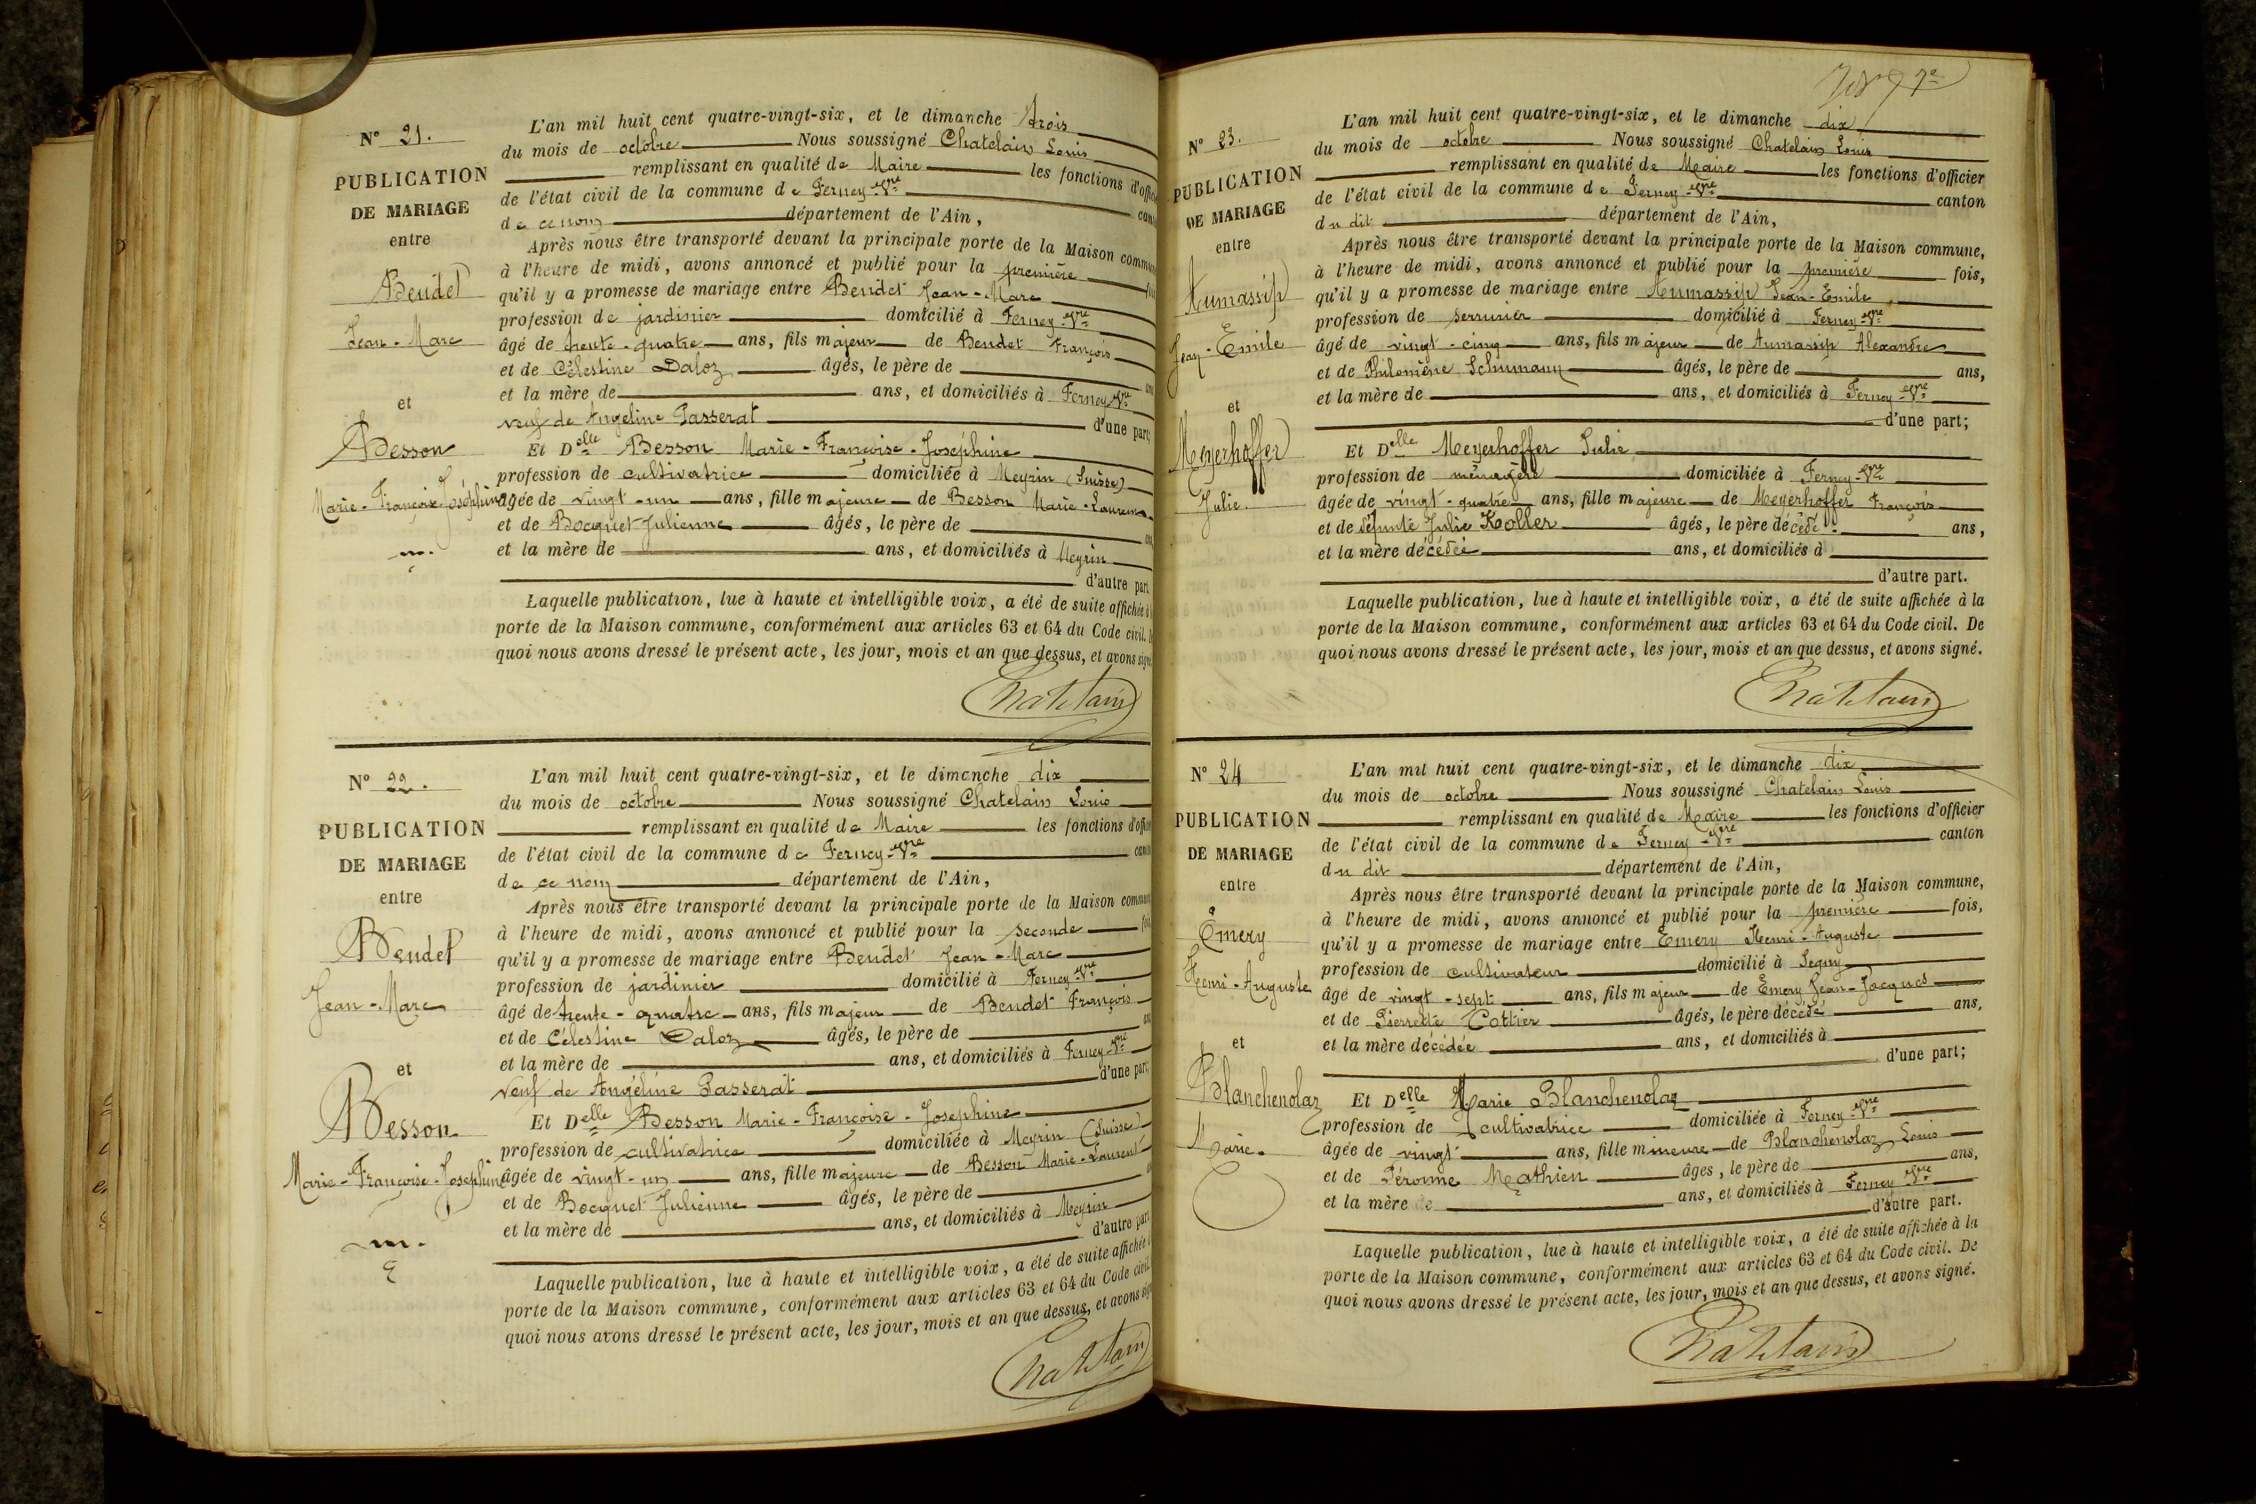 N° 21.
PUBLICATION
DE MARIAGE
entre
Bendet
Jean-Marc
et
Besson
Marie-Françoise-Joséphine
L'an mil huit cent quatre-vingt-six, et le dimanche trois
du mois de octobre Nous soussigné Chatelain Louis
remplissant en qualité de Maire les fonctions d'offic
de l'état civil de la commune de Ferney-Vre cant
de ce nom département de l'Ain,
Après nous être transporté devant la principale porte de la Maison commun
à l'heure de midi, avons annoncé et publié pour la première
qu'il y a promesse de mariage entre Bendet Jean-Marc
profession de jardinier domicilié à Ferney-Vre
âgé de trente-quatre ans, fils majeur de Bendet François
et de Célestine Daloz âgés, le père de
et la mère de ans, et domiciliés à Ferney-Vre
veuf de Angeline Passerat d'une part;
Et Delle Besson Marie-Françoise-Joséphine
profession de cultivatrice domiciliée à Meyrin (Suisse)
âgée de vingt-un ans, fille majeure de Besson Marie-Laurent
et de Bocquet Julienne âgés, le père de
et la mère de ans, et domiciliés à Meyrin
d'autre part
Laquelle publication, lue à haute et intelligible voix, a été de suite affichée à
porte de la Maison commune, conformément aux articles 63 et 64 du Code civil.
quoi nous avons dressé le présent acte, les jour, mois et an que dessus, et avons signé
Chatelain
N° 22.
PUBLICATION
DE MARIAGE
entre
Bendet
Jean-Marc
et
Besson
Marie-Françoise-Joséphine
L'an mil huit cent quatre-vingt-six, et le dimanche dix
du mois de octobre Nous soussigné Chatelain Louis
remplissant en qualité de Maire les fonctions d'offic
de l'état civil de la commune de Ferney-Vre cant
de ce nom département de l'Ain,
Après nous être transporté devant la principale porte de la Maison commun
à l'heure de midi, avons annoncé et publié pour la seconde foi
qu'il y a promesse de mariage entre Bendet Jean-Marc
profession de jardinier domicilié à Ferney-Vre
âgé de trente-quatre ans, fils majeur de Bendet François
et de Célestine Daloz âgés, le père de
et la mère de ans, et domiciliés à Ferney-Vre
veuf de Angéline Passerat d'une part;
Et Delle Besson Marie-Françoise-Joséphine
profession de cultivatrice domiciliée à Meyrin (Suisse)
âgée de vingt-un ans, fille majeure de Besson Marie-Laurent
et de Bocquet Julienne âgés, le père de
et la mère de ans, et domiciliés à Meyrin
d'autre part
Laquelle publication, lue à haute et intelligible voix, a été de suite affichée
porte de la Maison commune, conformément aux articles 63 et 64 du Code civil.
quoi nous avons dressé le présent acte, les jour, mois et an que dessus, et avons sig
Chatelain
N° 23.
PUBLICATION
DE MARIAGE
entre
Aumassip
Jean-Emile
et
Meyerhoffer
Julie.
L'an mil huit cent quatre-vingt-six, et le dimanche dix
du mois de octobre Nous soussigné Chatelain Louis
remplissant en qualité de Maire les fonctions d'officier
de l'état civil de la commune de Ferney-Vre canton
du dit département de l'Ain,
Après nous être transporté devant la principale porte de la Maison commune,
à l'heure de midi, avons annoncé et publié pour la première fois,
qu'il y a promesse de mariage entre Aumassip Jean-Emile
profession de serrurier domicilié à Ferney-Vre
âgé de vingt-cinq ans, fils majeur de Aumassip Alexandre
et de Philomène Schumann âgés, le père de ans,
et la mère de ans, et domiciliés à Ferney-Vre
d'une part;
Et Delle Meyerhoffer Julie
profession de ménagère domiciliée à Ferney-Vre
âgée de vingt-quatre ans, fille majeure de Meyerhoffer François
et de défunte Julie Koller âgés, le père décédé ans,
et la mère décédée ans, et domiciliés à
d'autre part.
Laquelle publication, lue à haute et intelligible voix, a été de suite affichée à la
porte de la Maison commune, conformément aux articles 63 et 64 du Code civil. De
quoi nous avons dressé le présent acte, les jour, mois et an que dessus, et avons signé.
Chatelain
N° 24
PUBLICATION
DE MARIAGE
entre
Emery
Henri-Auguste
et
Blanchenolaz
Marie.
L'an mil huit cent quatre-vingt-six, et le dimanche dix
du mois de octobre Nous soussigné Chatelain Louis
remplissant en qualité de Maire les fonctions d'officier
de l'état civil de la commune de Ferney-Vre canton
du dit département de l'Ain,
Après nous être transporté devant la principale porte de la Maison commune,
à l'heure de midi, avons annoncé et publié pour la première fois,
qu'il y a promesse de mariage entre Emery Henri-Auguste
profession de cultivateur domicilié à Segny
âgé de vingt-sept ans, fils majeur de Emery Jean-Jacques
et de Pierrette Cottier âgés, le père décédé ans,
et la mère décédée ans, et domiciliés à
d'une part;
Et Delle Marie Blanchenolaz
profession de cultivatrice domiciliée à Ferney-Vre
âgée de vingt ans, fille mineure de Blanchenolaz Louis
et de Péronne Mathieu âgés, le père de ans,
et la mère de ans, et domiciliés à Ferney-Vre
d'autre part.
Laquelle publication, lue à haute et intelligible voix, a été de suite affichée à la
porte de la Maison commune, conformément aux articles 63 et 64 du Code civil. De
quoi nous avons dressé le présent acte, les jour, mois et an que dessus, et avons signé.
Chatelain